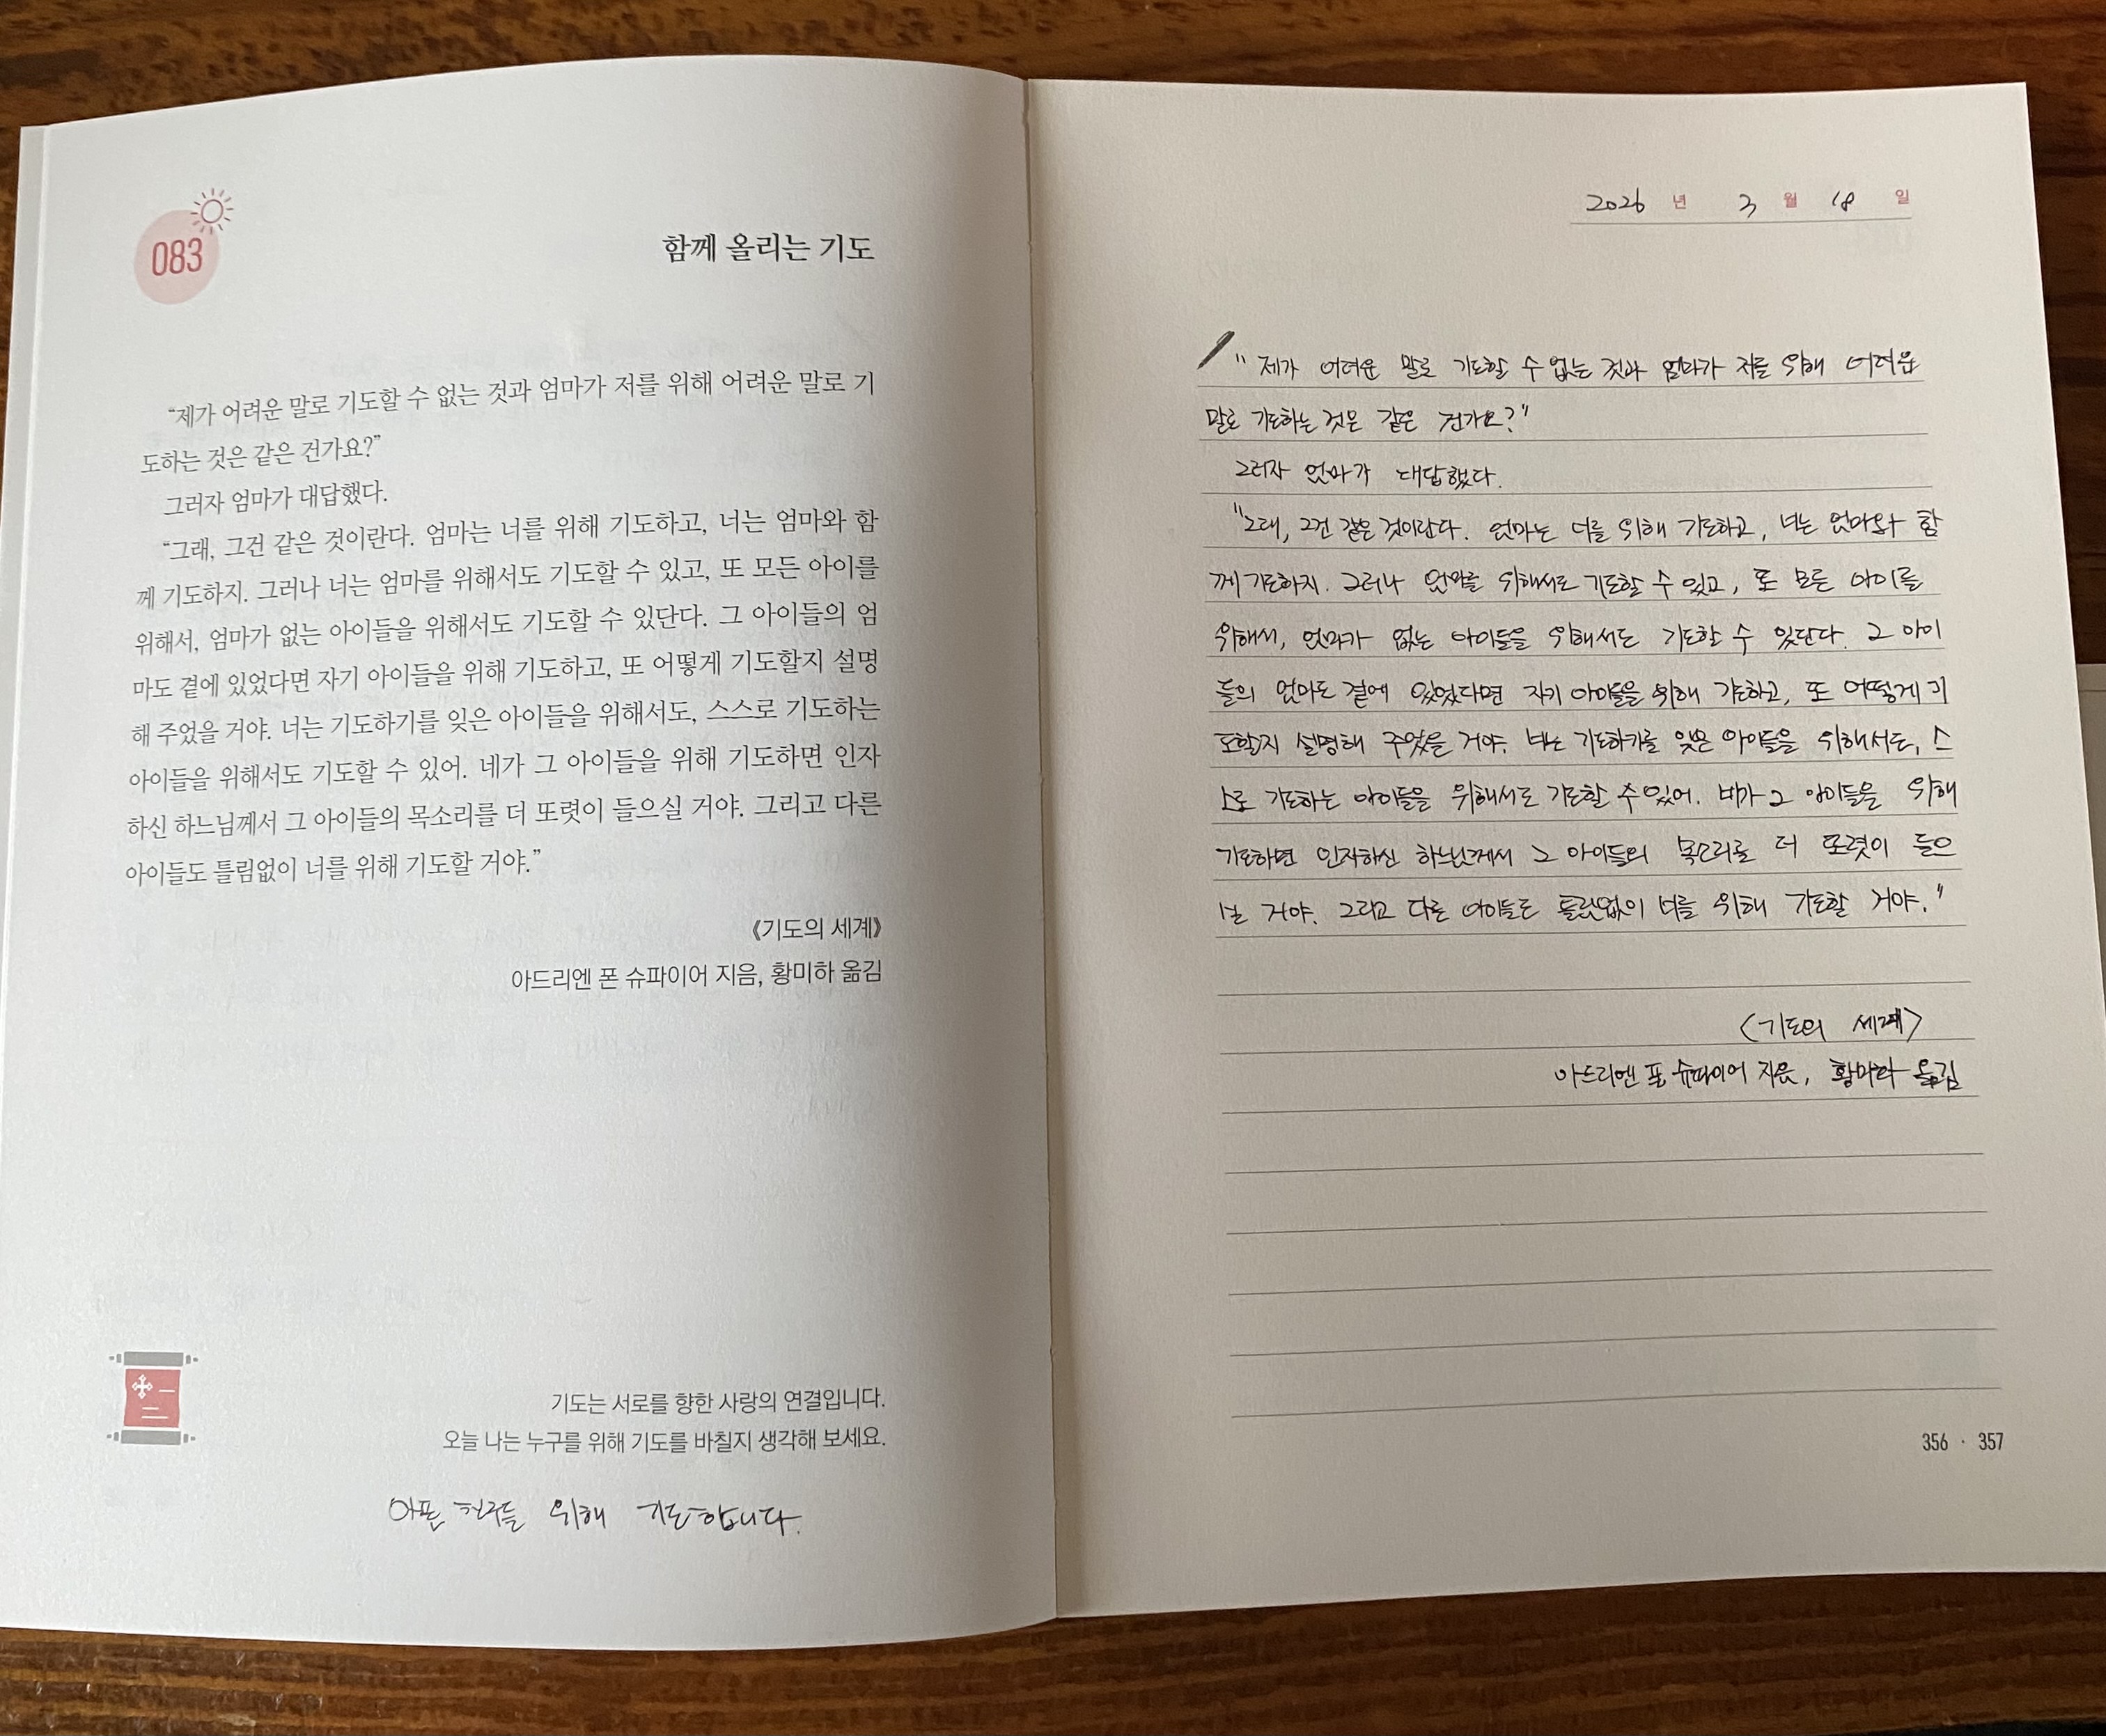 083
함께 올리는 기도
“제가 어려운 말로 기도할 수 없는 것과 엄마가 저를 위해 어려운 말로 기
도하는 것은 같은 건가요?”
그러자 엄마가 대답했다.
“그래, 그건 같은 것이란다. 엄마는 너를 위해 기도하고, 너는 엄마와 함
께 기도하지. 그러나 너는 엄마를 위해서도 기도할 수 있고, 또 모든 아이를
위해서, 엄마가 없는 아이들을 위해서도 기도할 수 있단다. 그 아이들의 엄
마도 곁에 있었다면 자기 아이들을 위해 기도하고, 또 어떻게 기도할지 설명
해 주었을 거야. 너는 기도하기를 잊은 아이들을 위해서도, 스스로 기도하는
아이들을 위해서도 기도할 수 있어. 네가 그 아이들을 위해 기도하면 인자
하신 하느님께서 그 아이들의 목소리를 더 또렷이 들으실 거야. 그리고 다른
아이들도 틀림없이 너를 위해 기도할 거야.”
《기도의 세계》
아드리엔 폰 슈파이어 지음, 황미하 옮김
기도는 서로를 향한 사랑의 연결입니다.
오늘 나는 누구를 위해 기도를 바칠지 생각해 보세요.
아픈 친구들 위해 기도합니다.
2026 년 3 월 18 일
"제가 어려운 말로 기도할 수 없는 것과 엄마가 저를 위해 어려운
말로 기도하는 것은 같은 건가요?"
그러자 엄마가 대답했다.
"그래, 그건 같은 것이란다. 엄마는 너를 위해 기도하고, 너는 엄마와 함
께 기도하지. 그러나 엄마를 위해서도 기도할 수 있고, 또 모든 아이를
위해서, 엄마가 없는 아이들을 위해서도 기도할 수 있단다. 그 아이
들의 엄마도 곁에 있었다면 자기 아이들을 위해 기도하고, 또 어떻게 기
도할지 설명해 주었을 거야. 너는 기도하기를 잊은 아이들을 위해서도, 스
스로 기도하는 아이들을 위해서도 기도할 수 있어. 네가 그 아이들을 위해
기도하면 인자하신 하느님께서 그 아이들의 목소리를 더 또렷이 들으
실 거야. 그리고 다른 아이들도 틀림없이 너를 위해 기도할 거야."
<기도의 세계>
아드리엔 폰 슈파이어 지음, 황미하 옮김
356 · 357